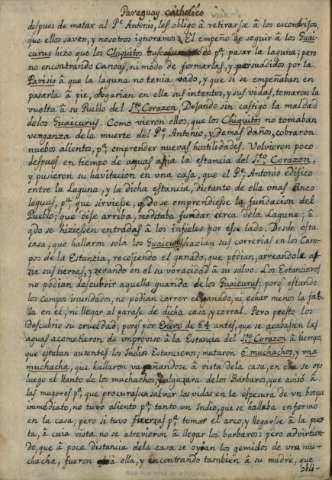 Paraguay catholico
despues de matar al Pe. Antonio, les obligò à retirarse à los escondrijos,
que ellos saven, y nosotros ignoramos. El empeño de seguir à los Guai
curus hizo que los Chiquitos de pr. pasar la laguna; pero
no encontrando Canoas, ni modo de formarlas, y persuadidos por la
que la laguna no tenia vado, y que si se empeñaban en
pasarla à pie, ahogarian en ella sus intentos, y sus vidas, tomaron la
vuelta à su Pueblo del Sto. Corazon, Dejando sin castigo la maldad
delos Guaicurus. Como vieron ellos, que los Chiquitos no tomaban
venganza dela muerte del Pe. Antonio, y demas daños, cobraron
nuebo aliento, pa. emprender nuevas hostilidades. Volvieron poco
despues en tiempo de aguas àsia la estancia del Sto. Corazon,
y pusieron su havitacion en una casa, que el Pe. Antonio edificò
entre la Laguna, y la dicha estancia, distante de ella unas cinco
leguas, pa. que sirviese, quando se emprendiese la fundacion del
Pueblo, que dije arriba, intentaba fundar cerca dela Laguna; à
quando se hiziesen entradas à los infieles por ese lado. Desde esta
casa, que hallaron sola los Guaicurus hacian sus correrias en los Cam-
pos de la Estancia, recojiendo el ganado, que podian, arreandole à
sus tierras, y cevando en el su voracidad à su salvo. Los Estancieros
no podian descubrir aquella guarida de los Guaicurus; porque estando
los campos inundados, no podian correr el ganado, ni echar menos la fal-
ta en el, ni llegar al paraje de dicha casa, y corral. Pero presto los
descubrio su crueldad; porque por Enero de 64 antes, que se acabasen las
aguas acometieron de improviso à la Estancia del Sto. Corazon à tiempo,
que estaban ausentes los Indios Estancieros; mataron 6 muchachos, y una
muchacha, que hallaron à vista dela casa, en ella se oyò
luego el llanto de los muchachos, y algazara delos Barbaros, que avisò à
las mugeres pa. que procurasen salvar las vidas en la espesura de un bosque
inmediato, no tuvo aliento pa. tanto un Indio, que se hallaba enfermo
en la casa; pero si tuvo fuerzas pa. tomar el arco, y llegarse à la puer-
ta, à cuia vista no se atrevieron à llegar los barbaros; pero advirtien-
do, que à poca distancia dela casa se oyan los gemidos de una mu-
chacha, fueron à ella, y encontrando tambien à su madre, que